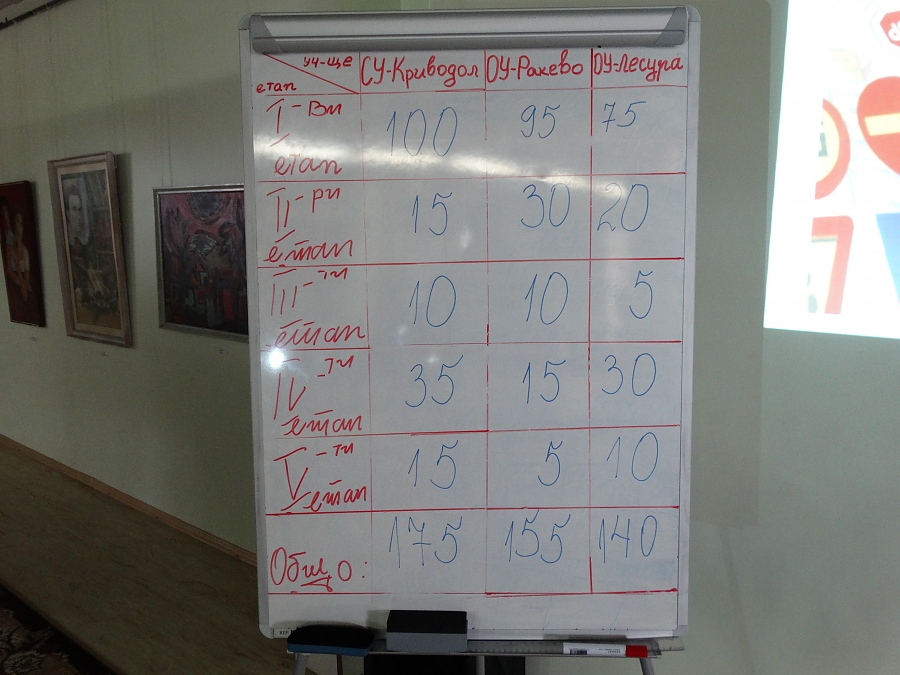 уч-ще
етап
СУ-Криводол ОУ-Ракево ОУ-Лесура
I-ви етап 100 95 75
II-ри етап 15 30 20
III-ти етап 10 10 5
IV-ти етап 35 15 30
V-ти етап 15 5 10
Общо: 175 155 140